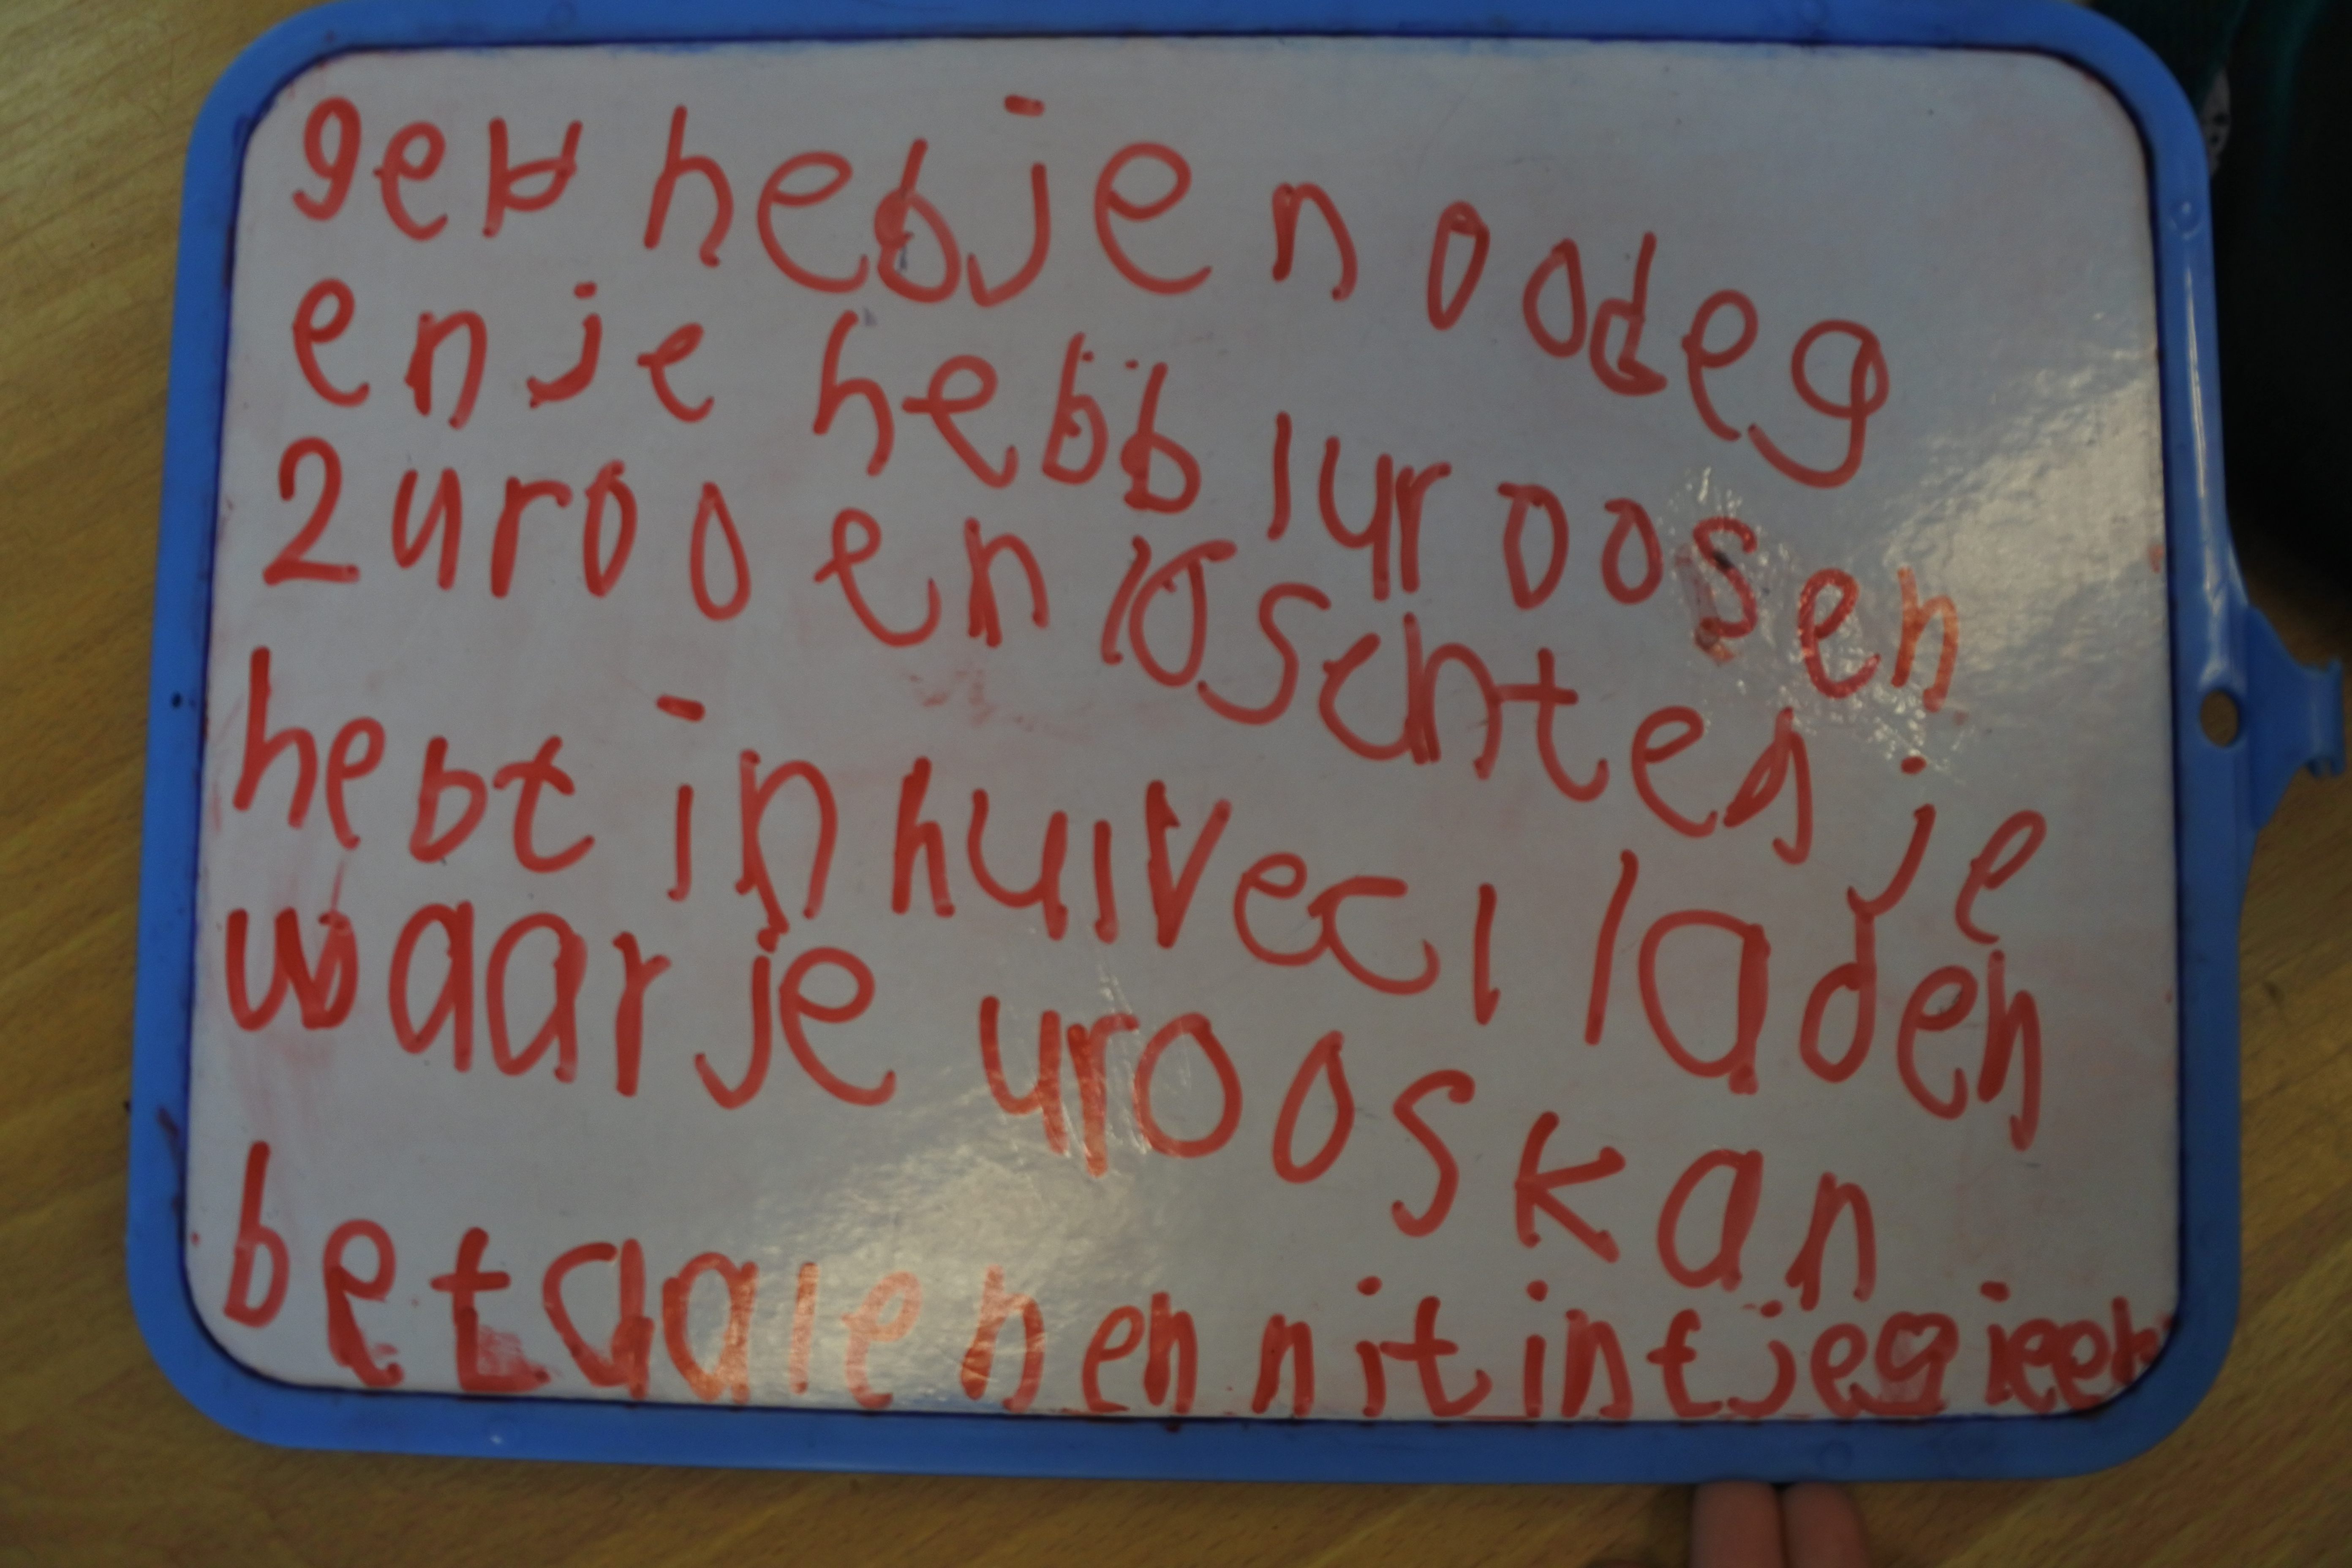 geld heb je noodeg
en je hebb 1 uroos en
2 uroo en 10 schten je
hebt in hulvecl laden
waar je uroos kan
betaalen en nit intje gieeh